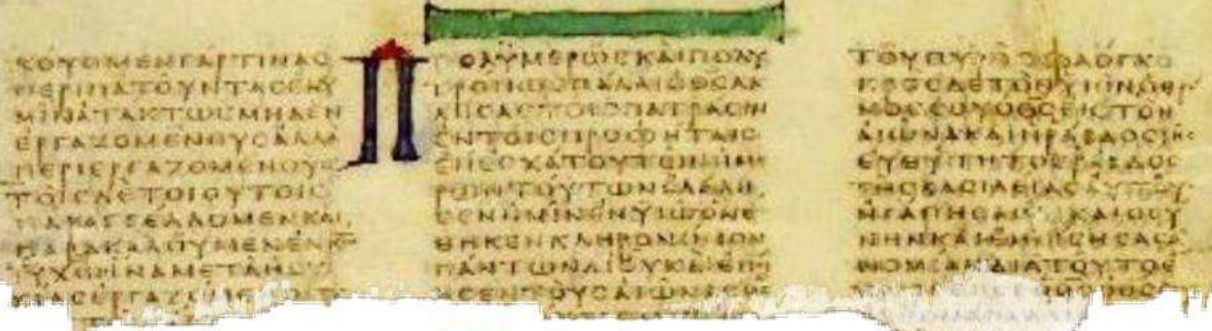 ΚΟΥΟΜΕΝΓΑΡΤΙΝΑϹ
ΠΕΡΙΠΑΤΟΥΝΤΑϹΕΝΥ
ΜΙΝΑΤΑΚΤΩϹΜΗΔΕΝ
ΕΡΓΑΖΟΜΕΝΟΥϹΑΛΛΑ
ΠΕΡΙΕΡΓΑΖΟΜΕΝΟΥϹ
ΤΟΙϹΔΕΤΟΙΟΥΤΟΙϹ
ΠΑΡΑΓΓΕΛΛΟΜΕΝΚΑΙ
ΠΑΡΑΚΑΛΟΥΜΕΝΕΝΚΩ
ΙΥΧΩΙΝΑΜΕΤΑΗϹΥ
ΧΙΑϹΕΡΓΑΖΟΜΕΝΟΙΤΟ
ΠΟΛΥΜΕΡΩϹΚΑΙΠΟΛΥ
ΤΡΟΠΩϹΠΑΛΑΙΟΘϹΛΑ
ΛΗϹΑϹΤΟΙϹΠΑΤΡΑϹΙΝ
ΕΝΤΟΙϹΠΡΟΦΗΤΑΙϹ
ΕΠΕϹΧΑΤΟΥΤΩΝΗΜΕ
ΡΩΝΤΟΥΤΩΝΕΛΑΛΗ
ϹΕΝΗΜΙΝΕΝΥΙΩΟΝΕ
ΘΗΚΕΝΚΛΗΡΟΝΟΜΟΝ
ΠΑΝΤΩΝΔΙΟΥΚΑΙΕΠΟΙ
ΗϹΕΝΤΟΥϹΑΙΩΝΑϹΟϹ
ΤΟΥΠΥΡΟϹΦΛΟΓΑ
ΠΡΟϹΔΕΤΟΝΥΙΟΝΟΘΡΟ
ΝΟϹϹΟΥΟΘϹΕΙϹΤΟΝ
ΑΙΩΝΑΚΑΙΗΡΑΒΔΟϹΤΗϹ
ΕΥΘΥΤΗΤΟϹΡΑΒΔΟϹ
ΤΗϹΒΑϹΙΛΕΙΑϹΑΥΤΟΥ
ΗΓΑΠΗϹΑϹΔΙΚΑΙΟϹΥ
ΝΗΝΚΑΙΕΜΙϹΗϹΑϹΑ
ΝΟΜΙΑΝΔΙΑΤΟΥΤΟΕ
ΧΡΙϹΕΝϹΕΟΘϹΟΘϹ